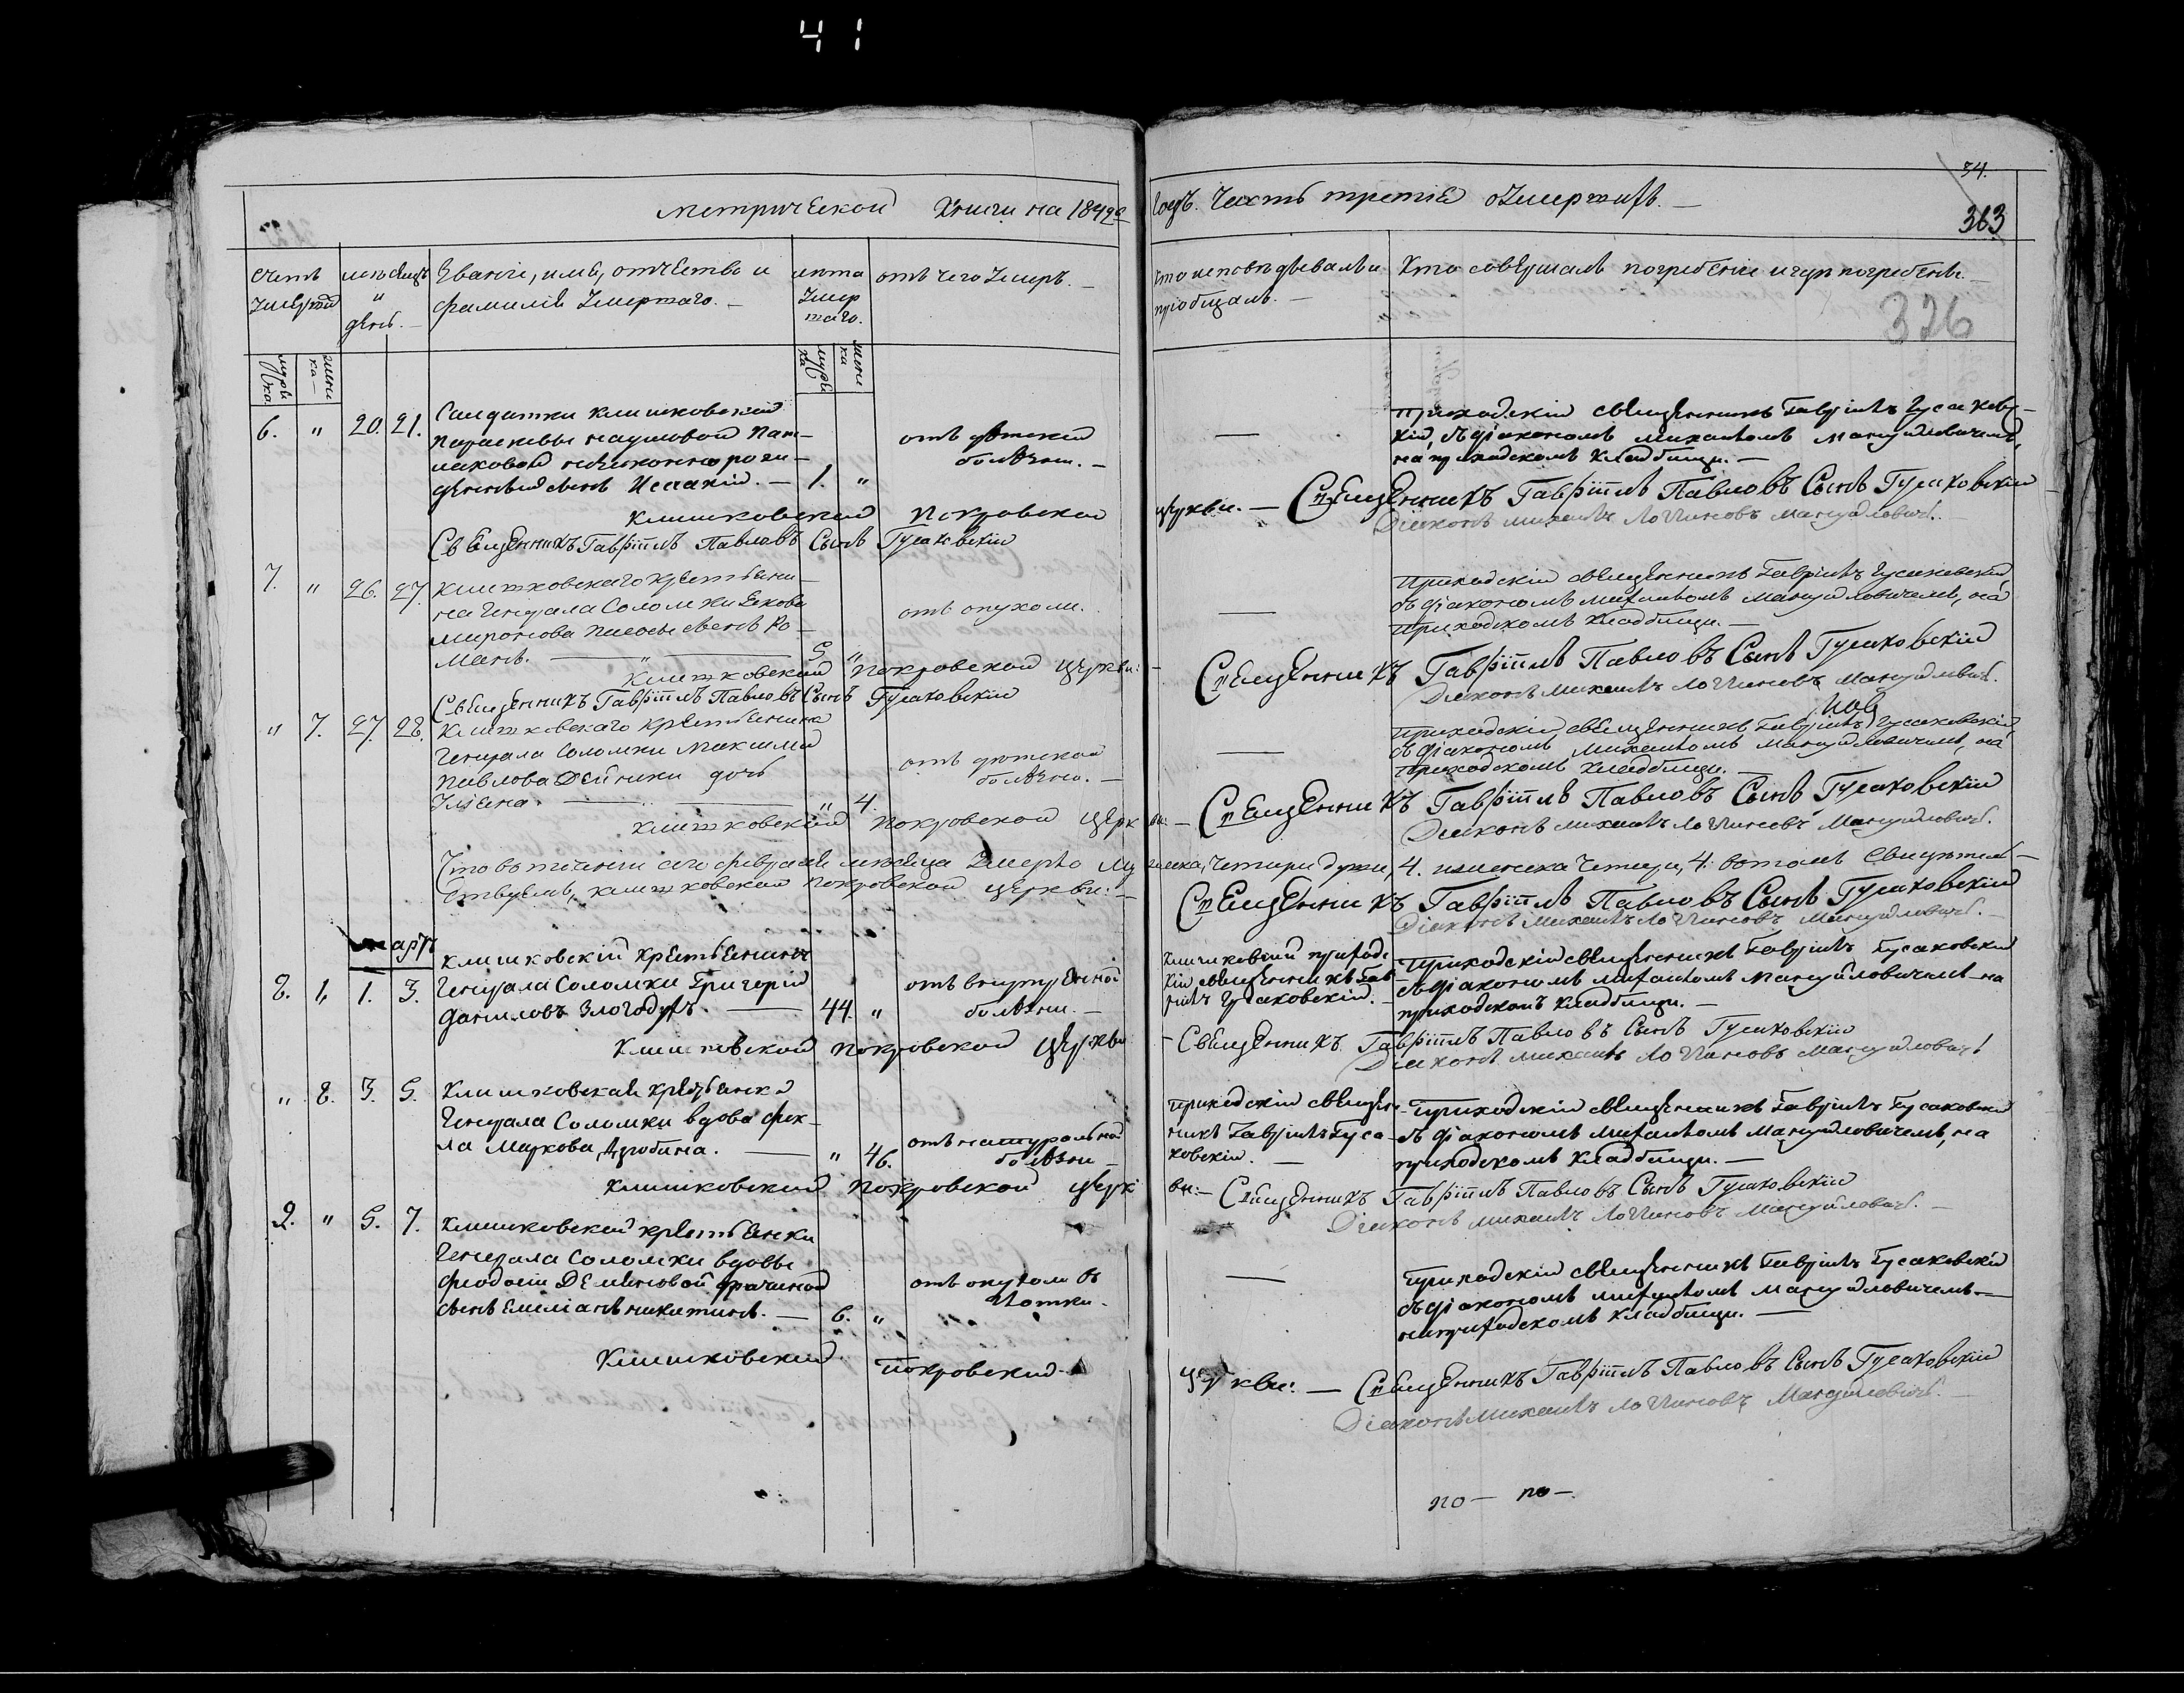 41
Метрической Книги на 1842й
Годъ. Часть третія о Умершихъ. —
34.
363
326
Счетъ умершихъ
мѣсяцъ и день. —
Званіе, имя, отчество и фамилія Умершаго. —
лѣта Умершаго.
отъ чего Умеръ. —
Кто исповѣдывалъ и пріобщалъ. —
Кто совершалъ погребеніе и гдѣ погребенъ. —
мужеска
женска
мужеска
женска
6. " 20. 21.
Салдатки клишковской
Параскевы Наумовой
незаконнорож-
денный сынъ Исаакій. — 1. "
отъ дѣтской
болѣзни. —
—
Приходскій священникъ Гавріилъ Гусаков-
кій, съ діакономъ Михаиломъ Мануйловичемъ,
на приходскомъ кладбищѣ. —
Клишковской Покровской
церкви. — Священникъ Гавріилъ Павловъ Сынъ Гусаковскій
Діаконъ Михаилъ Логвиновъ Мануйловичъ. —
Священникъ Гавріилъ Павловъ Сынъ Гусаковскій
7. " 26. 27.
Клишковскаго крестьяни-
на Генерала Соломки Якова
Миронова сынъ Ро-
манъ. — " — 5. "
отъ опухоли.
—
Приходскій священникъ Гавріилъ Гусаковскій,
съ діакономъ Михаиломъ Мануйловичемъ, на
приходскомъ кладбищѣ. —
Клишковской Покровской церкви: —
Священникъ Гавріилъ Павловъ Сынъ Гусаковскій
Діаконъ Михаилъ Логвиновъ Мануйловичъ.
Священникъ Гавріилъ Павловъ Сынъ Гусаковскій
" 7. 27. 28.
Клишковскаго крестьянина
Генерала Соломки Максима
Павлова Дейники дочь
Уліяна. — " — " 4.
отъ дѣтской
болѣзни. —
—
Приходскій священникъ Гавріилъ Гусаковскій,
съ діакономъ Михаиломъ Мануйловичемъ, на
приходскомъ кладбищѣ. —
Клишковской Покровской церкви: — Священникъ Гавріилъ Павловъ Сынъ Гусаковскій
Діаконъ Михаилъ Логвиновъ Мануйловичъ.
Что въ теченіи сего февраля мѣсяца Умерло мужеска, Четыри души, 4. и женска Четыри, 4. въ томъ Свидѣтель-
ствуемъ, клишковской Покровской церкви: —
Священникъ Гавріилъ Павловъ Сынъ Гусаковскій
Діаконъ Михаилъ Логвиновъ Мануйловичъ. —
мартъ
8. 1. 3.
Клишковскій крестьянинъ
Генерала Соломки Григорій
Даниловъ Злогодухъ. — 44. "
отъ внутренной
болѣзни. —
Клишковскій приходс-
кій священникъ Гав-
ріилъ Гусаковскій. —
Приходскій священникъ Гавріилъ Гусаковскій
съ діакономъ Михаиломъ Мануйловичемъ на
приходскомъ кладбищѣ. —
Клишковской Покровской церкви
— Священникъ Гавріилъ Павловъ Сынъ Гусаковскій
Діаконъ Михаилъ Логвиновъ Мануйловичъ
" 8. 3. 5.
Клишковская крестьянка
Генерала Соломки вдова Фек-
ла Маркова — " 46.
отъ натуральной
болѣзни —
Приходскій священ-
никъ Гавріилъ Гуса-
ковскій. —
Приходскій священникъ Гавріилъ Гусаковскій
съ діакономъ Михаиломъ Мануйловичемъ, на
приходскомъ кладбищѣ. —
Клишковской Покровской церкви: — Священникъ Гавріилъ Павловъ Сынъ Гусаковскій
Діаконъ Михаилъ Логвиновъ Мануйловичъ. —
9. " 5. 7.
Клишковской крестьянки
Генерала Соломки вдовы
Феодосіи Деминовой
сынъ Емеліанъ Никитинъ. — 6. "
отъ опухоли въ
глотки.
—
Приходскій священникъ Гавріилъ Гусаковскій
съ діакономъ Михаиломъ Мануйловичемъ —
на приходскомъ кладбищѣ. —
Клишковской Покровской
церкви: — Священникъ Гавріилъ Павловъ Сынъ Гусаковскій
Діаконъ Михаилъ Логвиновъ Мануйловичъ. —
по — по —